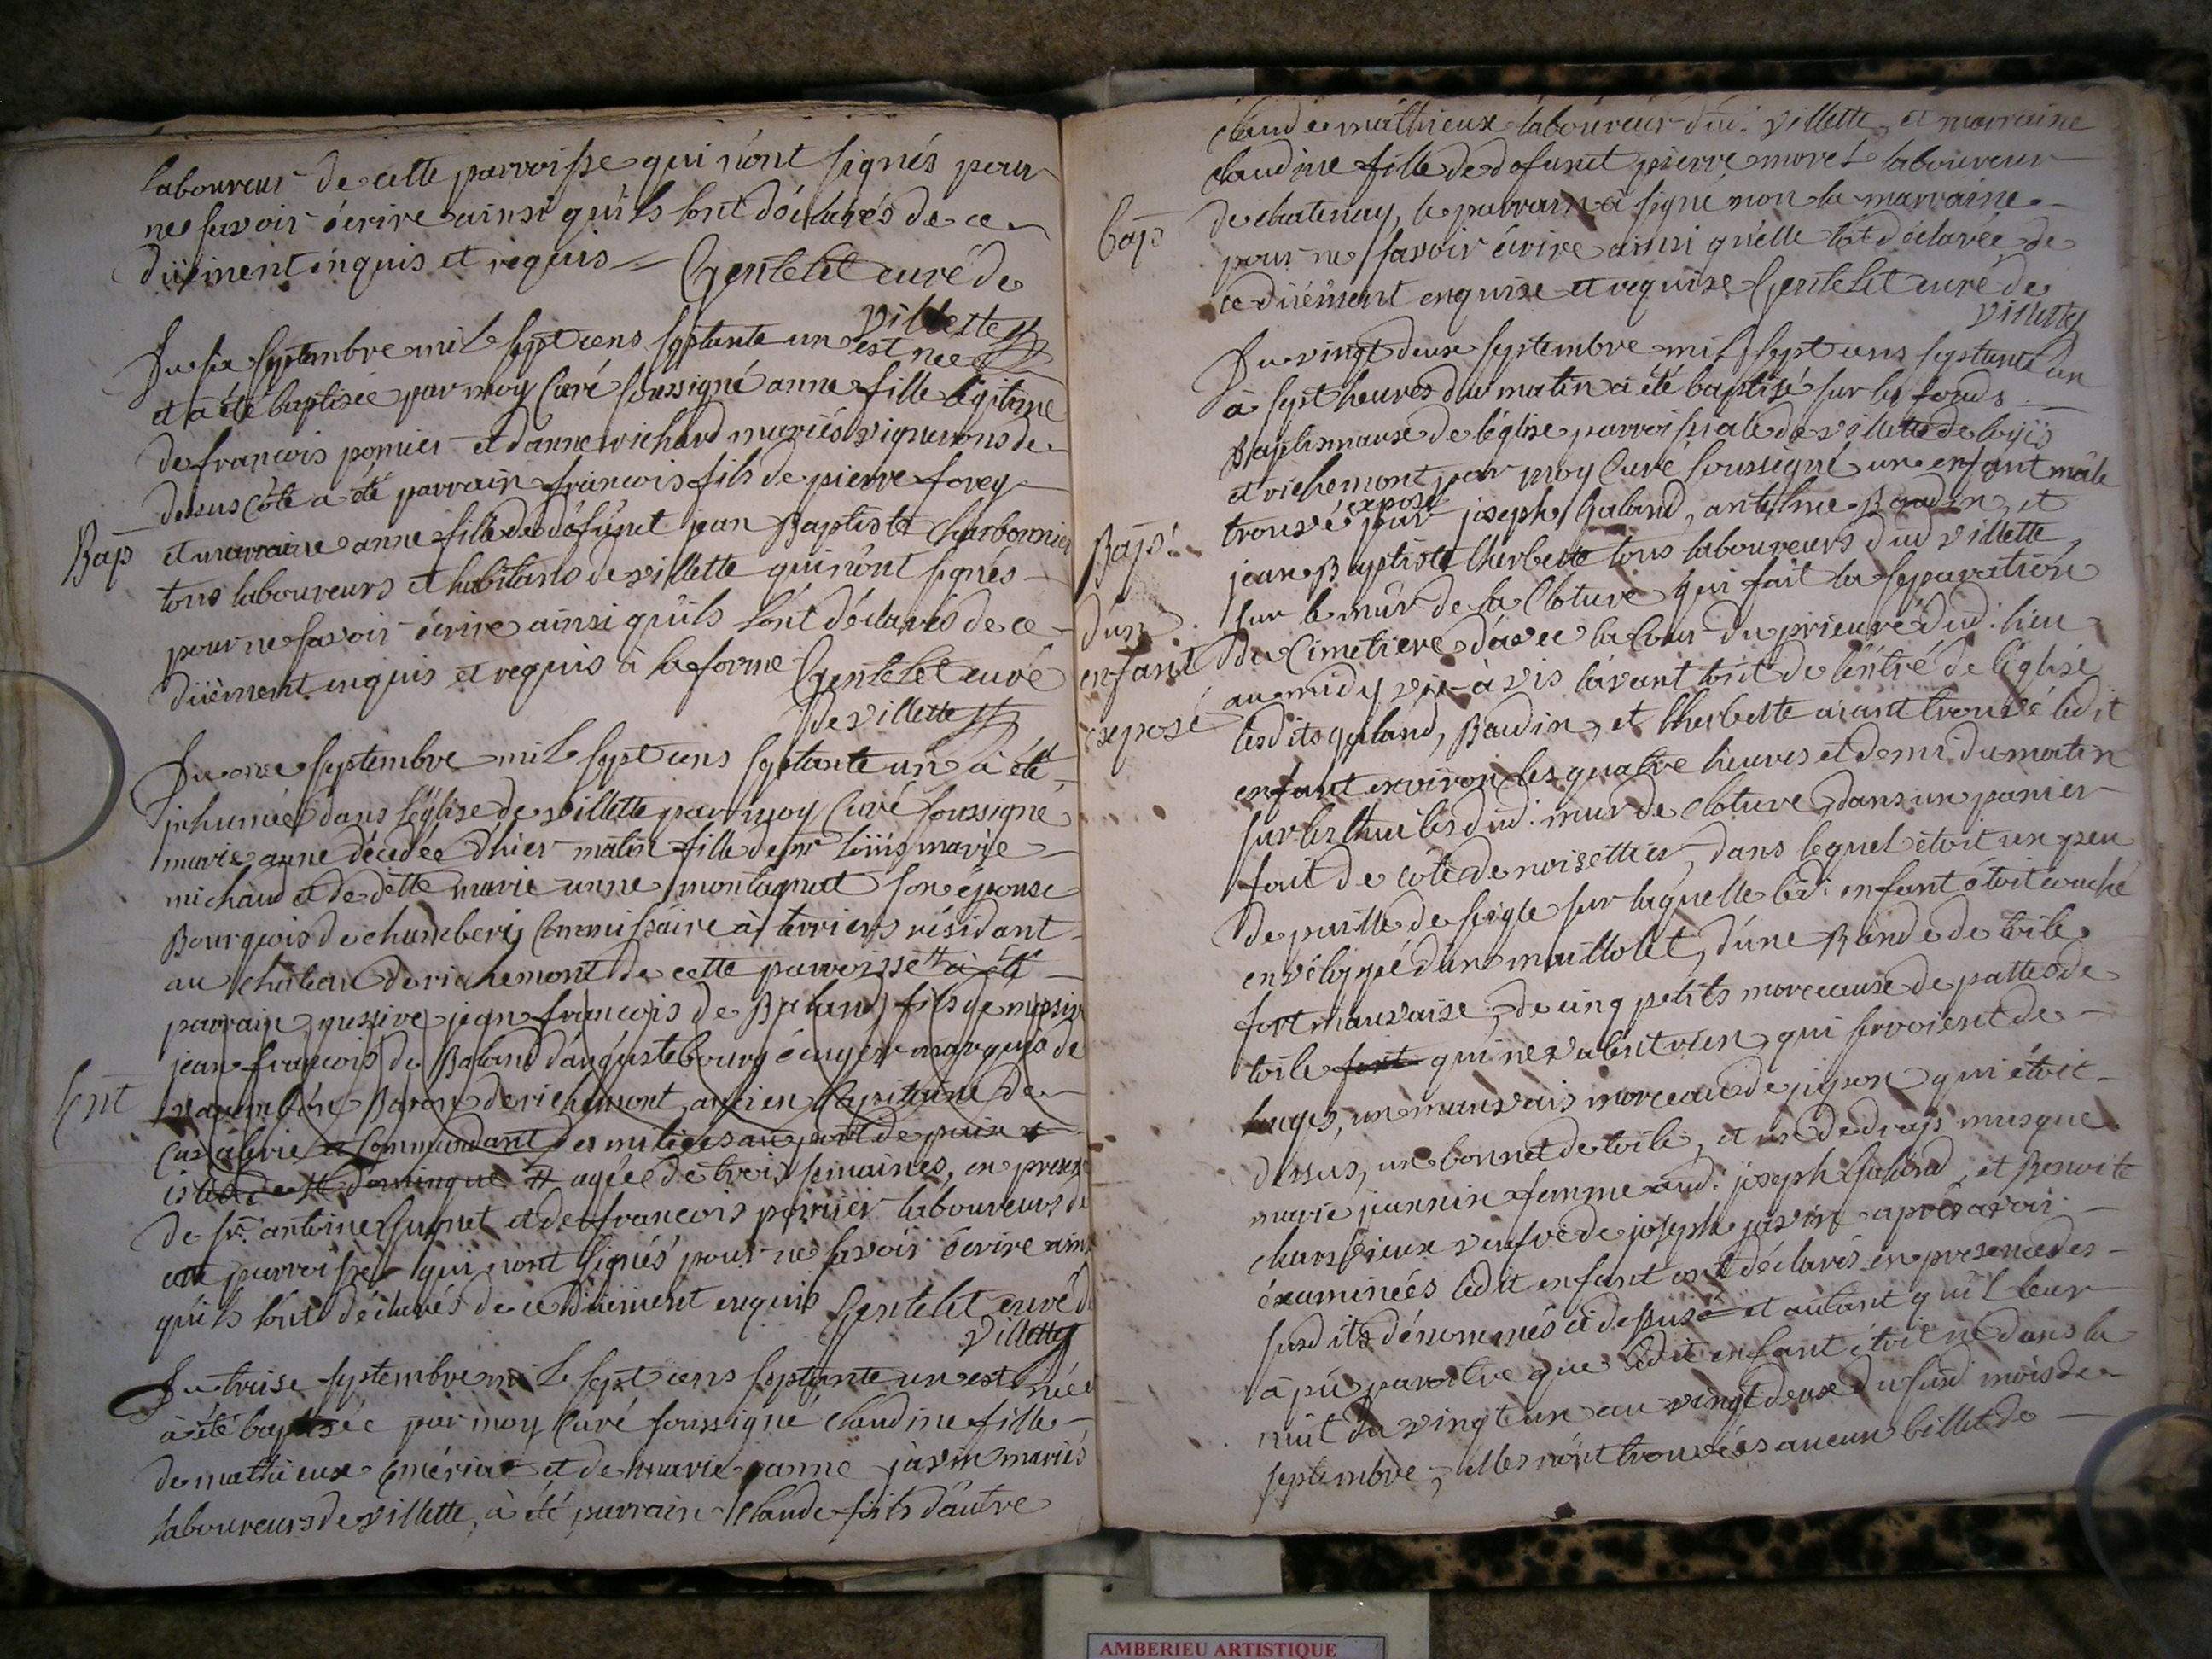 laboureur de cette parroisse qui n'ont signés pour
ne savoir écrire ainsi qu'ils sont déclarés de ce
düement enquis et requis = Gentelet curé de
villette
Du six septembre mil sept cens septante un est née
et a été baptisée par moy Curé soussigné anne fille légitime
de francois pomier et d'anne richard mariés vignerons de
dessus côte a été parrain francois fils de pierre forey
Bap et marraine anne fille de défunct jean Baptiste Charbonnier
tous laboureurs et habitans de villette qui n'ont signés
pour ne savoir écrire ainsi qu'ils sont déclarés de ce
düement enquis et requis à la forme Gentelet curé
de villette
Du onze septembre mil sept cens septante un a été
inhumée dans l'église de villette par moy Curé soussigné
marie anne décédée d'hier matin fille de mr loüis marie
michaud et de dette marie anne montagnat son épouse
Bourgeois de chambery Commissaire à terriers résidant
au château de richemont de cette parroisse à été
parrain messire jean francois de Baland fils de messire
jean francois de Baland d'augustebourg écuyer marquis de
Ent varambon Baron de richemont, ancien Capitaine de
Cavalerie et Commandant des milices au port de paix
isle de st domingue agée de trois semaines, en presence
de sr. antoine Cugnet et de francois pomier laboureurs de
cette parroisse qui n'ont signés pour ne savoir écrire ainsi
qu'ils sont déclarés de ce düement enquis Gentelet curé de
villette
Du treise septembre mil sept cens septante un est née
à été baptisée par moy Curé soussigné claudine fille
de mathieux émériat et de marie anne javin mariés
laboureurs de villette, à été parrain Claude fils d'autre
claude mathieux laboureur dud. villette et marraine
claudine fille de defunct pierre morel laboureur
Bap de chatenay, le parrain à signé non la marraine
pour ne savoir écrire ainsi qu'elle s'est déclarée de
ce düement enquise et requise Gentelet curé de
villette
Du vingt deux septembre mil sept cens septante un
à sept heures du matin à été baptisé sur les fonds
Baptismaux de l'église parroissiale de villette de loyes
et richemont par moy Curé soussigné un enfant mâle
exposé
trouvé par joseph Galand, antelme Baudin, et
Bap. jean Baptiste Cherbette tous laboureurs dud villette
d'un sur le mûr de la Cloture qui fait la séparation
enfant du Cimetiere d'avec la Cour du prieuré dud. lieu
exposé au midy vis-à vis l'avant toit de l'entré de l'église
lesdits galand, Baudin, et Cherbette aiant trouvé ledit
enfant environ les quatre heures et demi du matin
sur les thuiles dud. mur de Cloture, dans un panier
fait de côte de noisettier, dans lequel étoit un peu
de paille de seigle sur laquelle led. enfant étoit couché
enveloppé d'un maillolet, d'une Bande de toile
fort mauvaise, de cinq petits morceaux de pattes de
toile fort qui ne valent rien, qui servoient de
langes, un mauvais morceau de jupon qui étoit
dessus, un bonnet de toile, et un de drap musque
marie jannin femme aud. joseph Galand, et Benoite
veufve de joseph javin après avoir
éxaminées ledit enfant ont déclarés en presence des
susdits dénommés ci dessus et autant qu'il leur
à pû paroitre que ledit enfant étoit né dans la
nuit du vingt un au vingt deux du susd. mois de
septembre, elles n'ont trouvées aucun billet de
AMBERIEU ARTISTIQUE